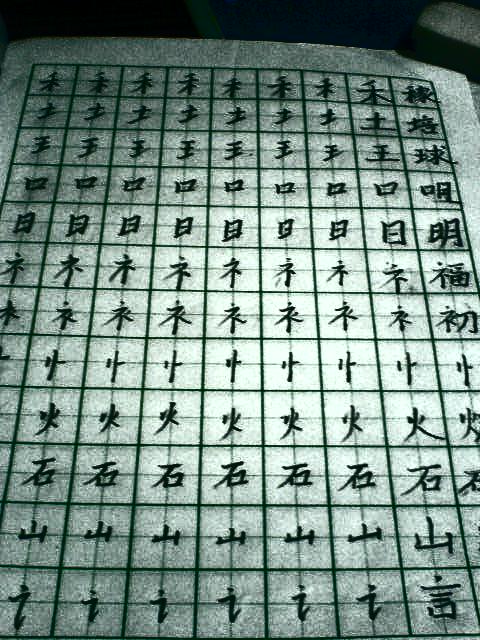 禾 禾 禾 禾 禾 禾 禾 禾
土 土 土 土 土 土 土 土 培
王 王 王 王 王 王 王 王 球
口 口 口 口 口 口 口 口
日 日 日 日 日 日 日 日 明
礻 礻 礻 礻 礻 礻 礻 礻 福
衤 衤 衤 衤 衤 衤 衤 衤 初
忄 忄 忄 忄 忄 忄 忄
火 火 火 火 火 火 火 火
石 石 石 石 石 石 石
山 山 山 山 山 山 山
讠 讠 讠 讠 讠 讠 言